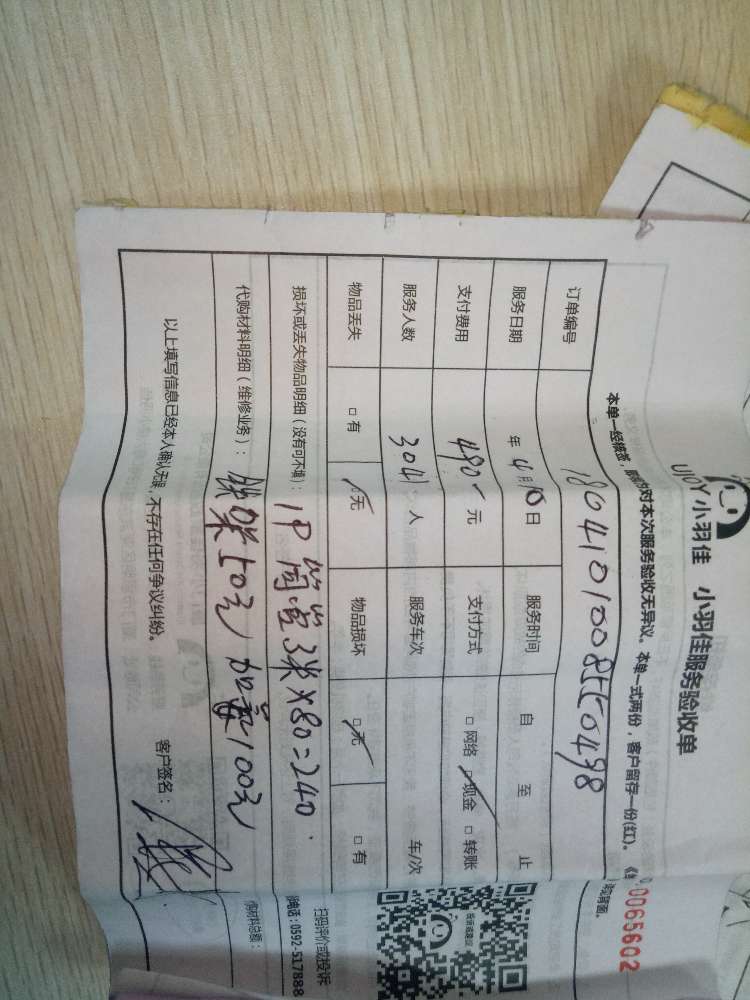 UJOY 小羽佳 小羽佳服务验收单
对本次服务验收无异议。本单一式两份，客户留存一份(红)。
0065602
订单编号 180410100855
服务日期 年 4月10日 服务时间 自 至 止
支付费用 490 元 支付方式 □网络 □现金 □转账
服务人数 人 服务车次 车/次
物品丢失 □有 □无 物品损坏 □无 □有
损坏或丢失物品明细（没有可不填）： 1P 3米×80=240.
代购材料明细（维修业务）： 铁架50元 100元
以上填写信息已经本人确认无误，不存在任何争议纠纷。 客户签名：
扫码评价或投诉
电话：0592-517888
购材料总额：